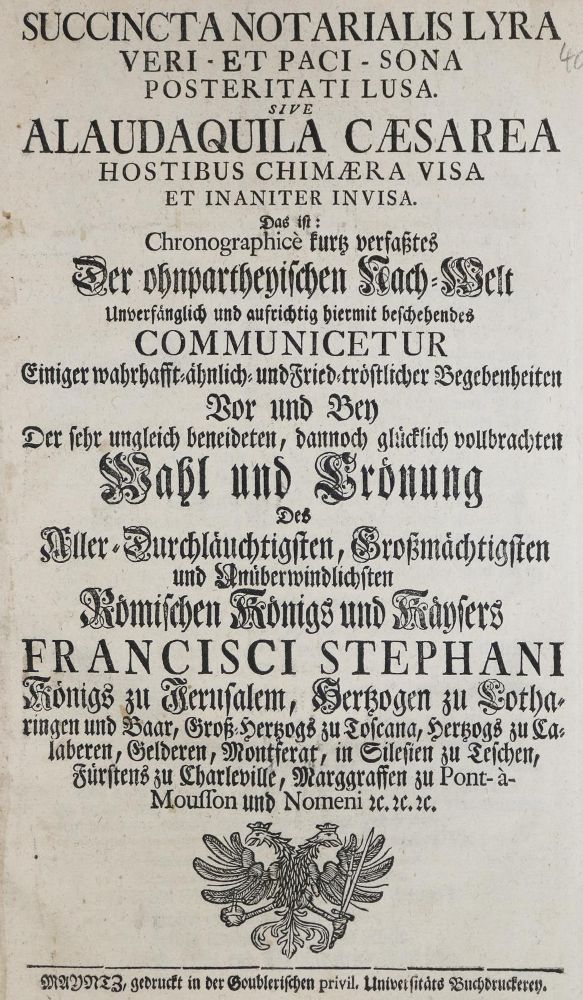 SUCCINCTA NOTARIALIS LYRA
VERI - ET PACI - SONA
POSTERITATI LUSA.
SIVE
ALAUDAQUILA CÆSAREA
HOSTIBUS CHIMÆRA VISA
ET INANITER INVISA.
Das ist:
Chronographicè kurtz verfaßtes
Der ohnpartheyischen Nach-Welt
Unverfänglich und aufrichtig hiermit beschehendes
COMMUNICETUR
Einiger wahrhafft-ähnlich- und Fried-tröstlicher Begebenheiten
Vor und Bey
Der sehr ungleich beneideten, dannoch glücklich vollbrachten
Wahl und Crönung
Des
Aller-Durchläuchtigsten, Großmächtigsten
und Unüberwindlichsten
Römischen Königs und Käysers
FRANCISCI STEPHANI
Königs zu Jerusalem, Hertzogen zu Lotha-
ringen und Baar, Groß-Hertzogs zu Toscana, Hertzogs zu Ca-
laberen, Gelderen, Montferat, in Silesien zu Teschen,
Fürstens zu Charleville, Marggraffen zu Pont- à-
Mousson und Nomeni ꝛc. ꝛc. ꝛc.
MAYNTZ, gedruckt in der Goublerischen privil. Universitäts Buchdruckerey.